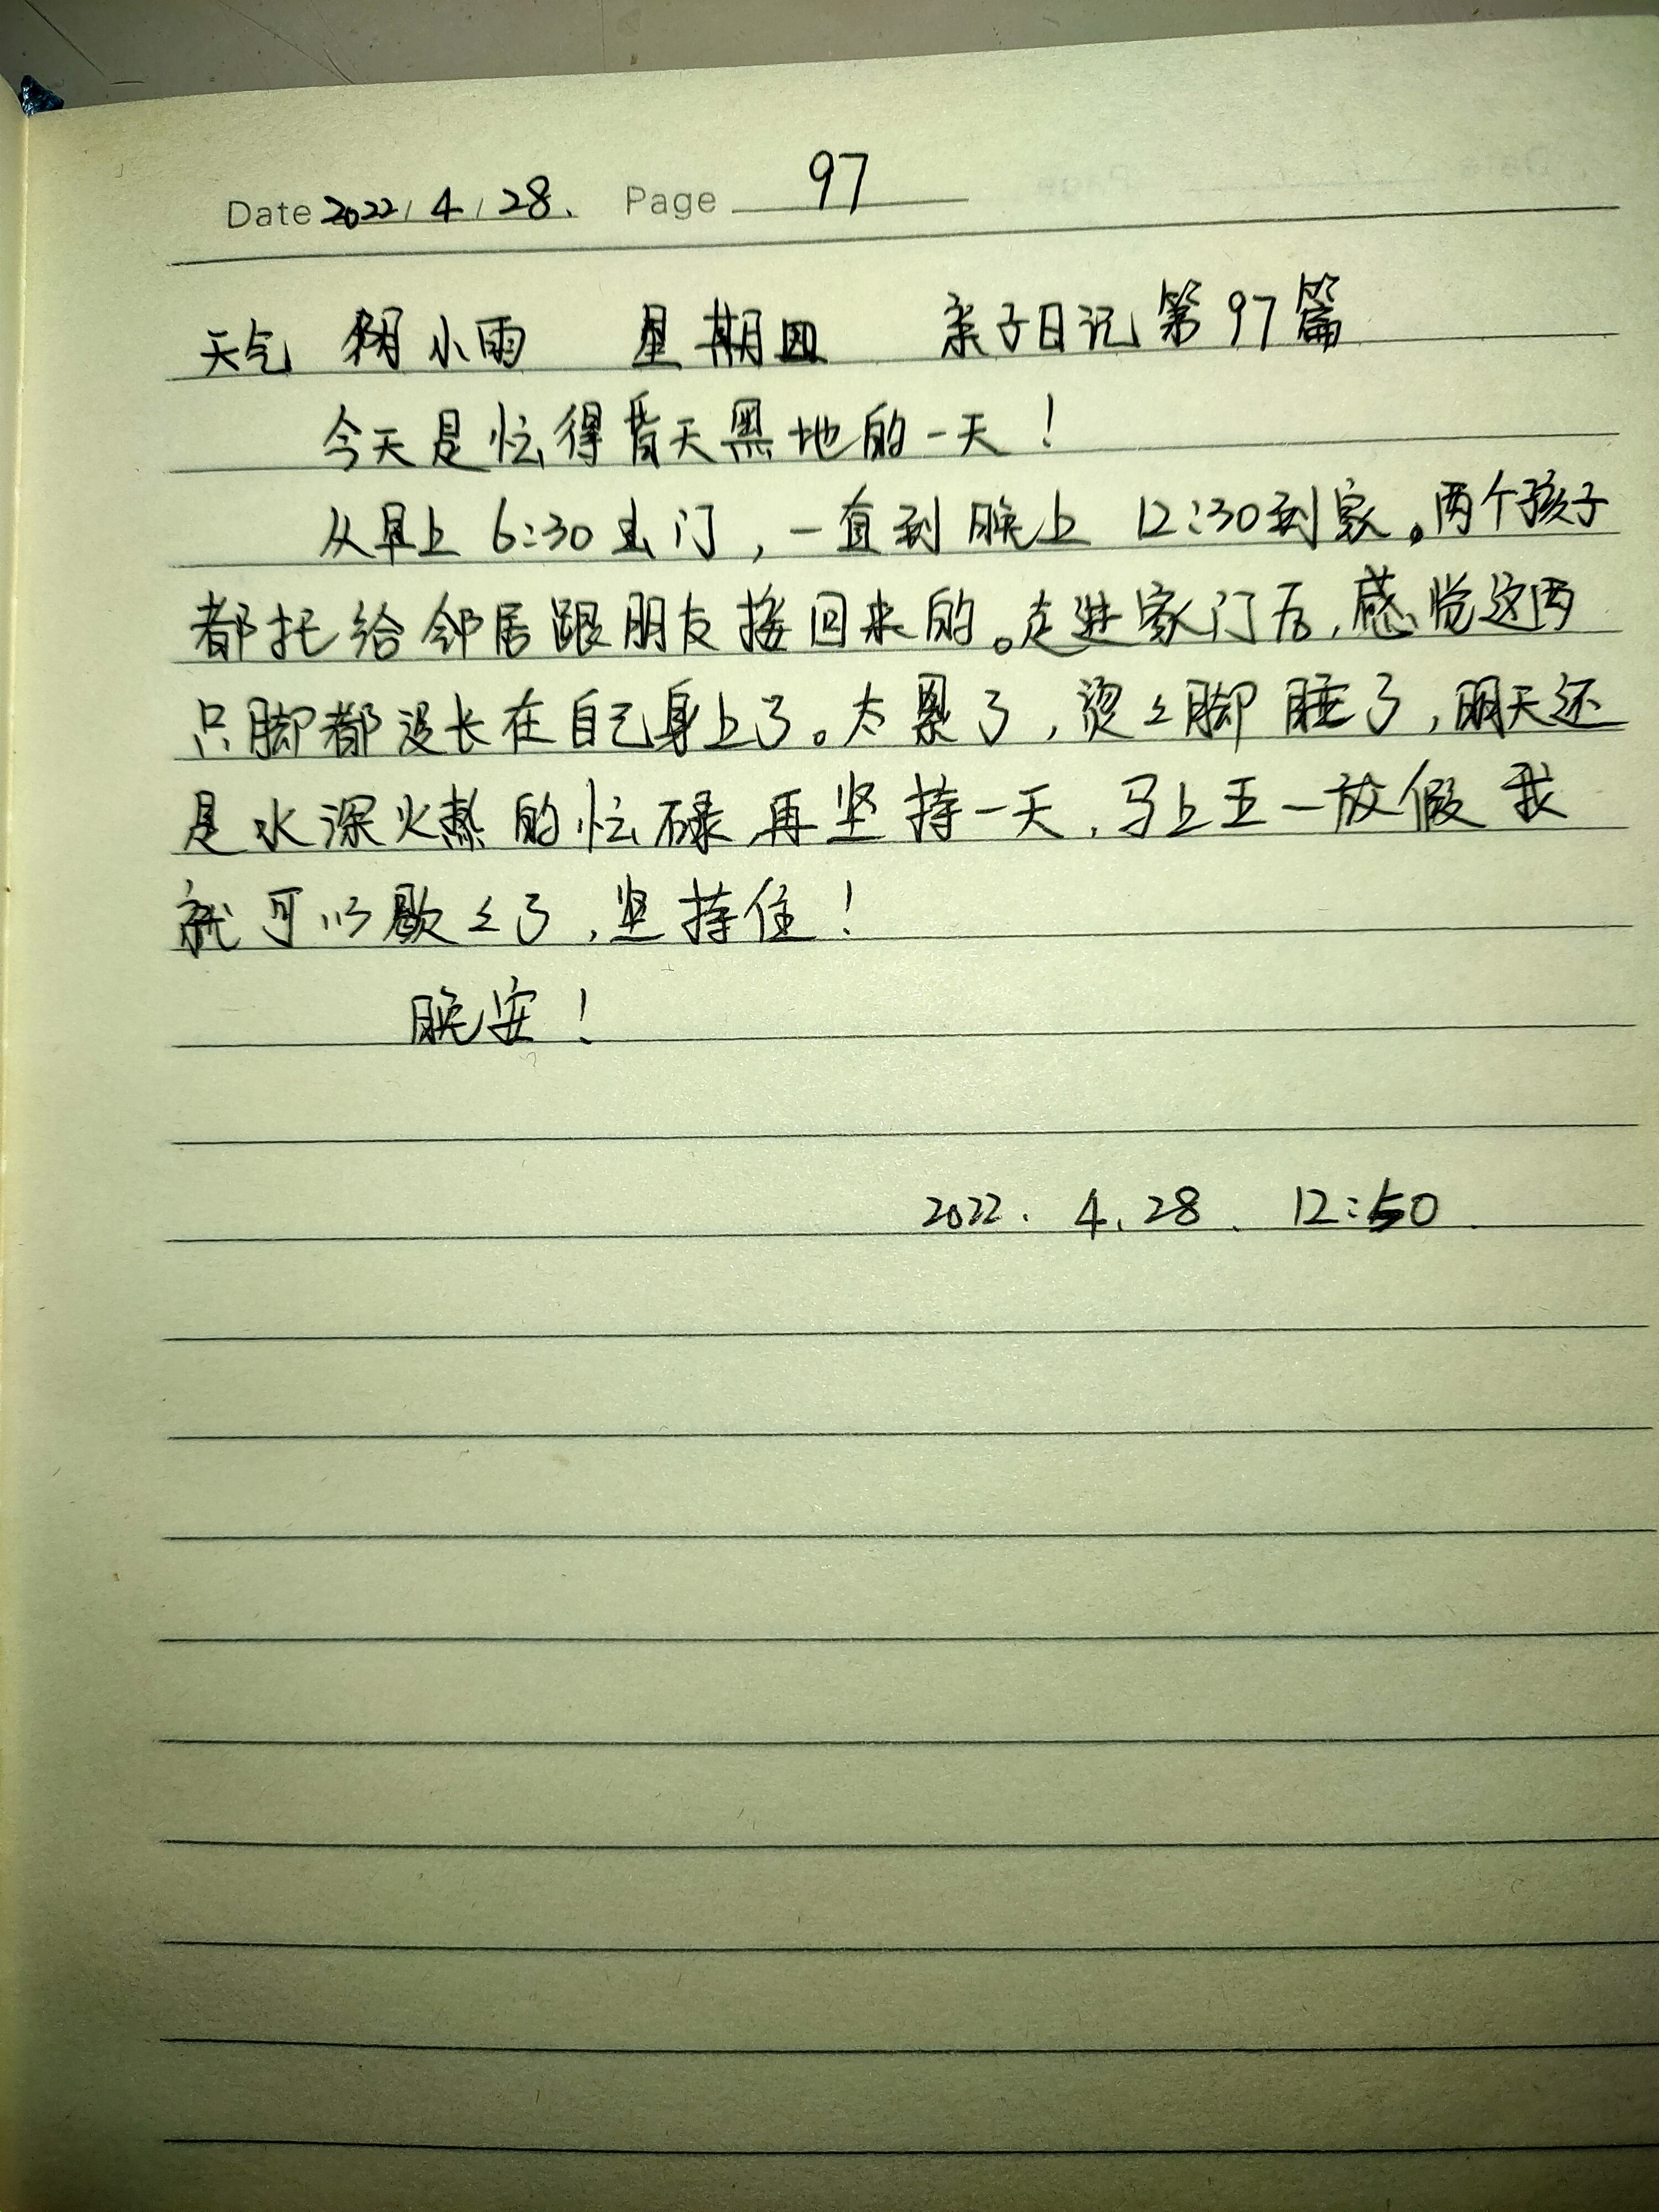 Date 2022/4/28. Page 97
天气 阴小雨 星期四 亲子日记第97篇
今天是忙得昏天黑地的一天！
从早上6:30出门，一直到晚上12:30到家。两个孩子
都托给邻居跟朋友接回来的。走进家门后，感觉这两
只脚都没长在自己身上了。太累了，烫々脚睡了，明天还
是水深火热的忙碌，再坚持一天，马上五一放假我
就可以歇々了，坚持住！
晚安！
2022.4.28. 12:50.